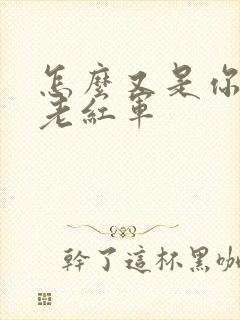 怎麼又是你
老紅軍
幹了這杯黑咖